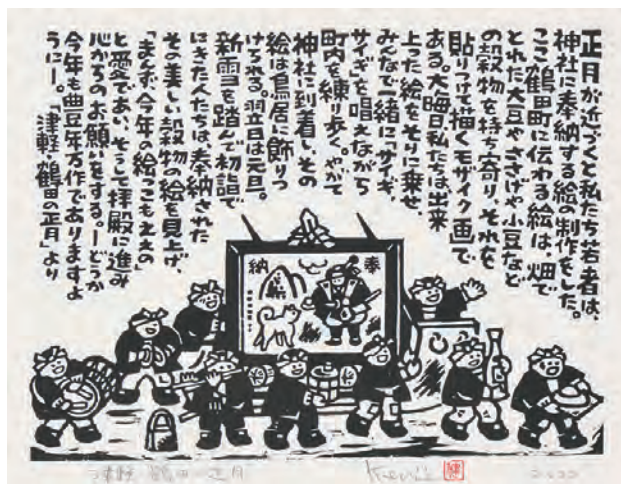 正月が近づくと私たち若者は、
神社に奉納する絵の制作をした。
ここ鶴田町に伝わる絵は、畑で
とれた大豆やささげや小豆など
の穀物を持ち寄り、それを
貼りつけて描くモザイク画で
ある。大晦日、私たちは出来
上った絵をそりに乗せ、
みんなで一緒に「サイギ、
サイギ」を唱えながら
町内を練り歩く。やがて
神社に到着し、その
絵は鳥居に飾りつ
けられる。翌日は元旦。
新雪を踏んで初詣で
にきた人たちは、奉納された
その美しい穀物の絵を見上げ、
「まんず、今年の絵っこもええの」
と愛であい、そうして拝殿に進み
心からのお願いをする。ーどうか
今年も豊年万作でありますよ
うにー。「津軽・鶴田の正月」より
奉
納
津軽 鶴田の正月